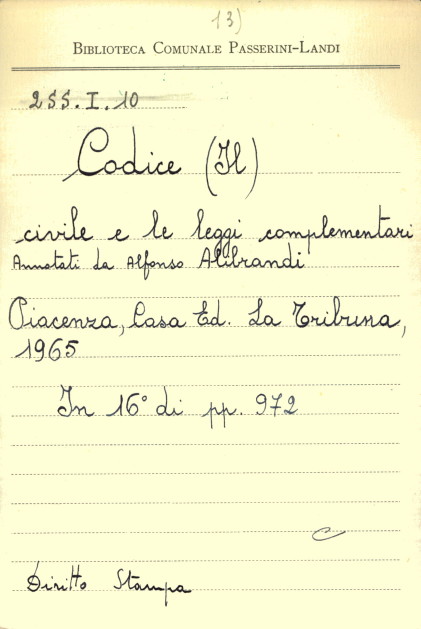 13)
BIBLIOTECA COMUNALE PASSERINI-LANDI
2SS.I.10
Codice (Il)
civile e le leggi complementari
Annotati da Alfonso Alibrandi
Piacenza, Casa Ed. La Tribuna,
1965
In 16° di pp. 972
C
Diritto Stampa